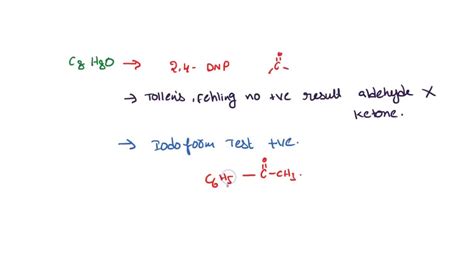 C8 H8O → 2,4- DNP O C
→ Tollen's, Fehling no +ve result aldehyde X
ketone.
→ Iodoform Test +ve.
O
C6H5 — C-CH3.